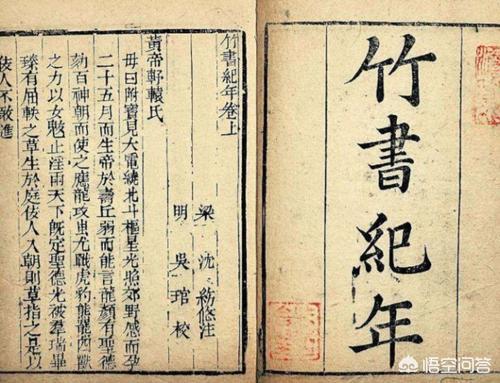 竹書紀年
竹書紀年卷上
梁 沈約附注
明 吳琯校
黃帝軒轅氏
母曰附寶見大電繞北斗樞星光照郊野感而孕
二十五月而生帝於壽丘弱而能言龍顏有聖德
劾百神朝而使之應龍攻蚩尤戰虎豹熊羆四獸
之力以女魃止淫雨天下既定聖德光被羣瑞畢
臻有屈軼之草生於庭佞人入朝則草指之是以
佞人不敢進
悟空问答